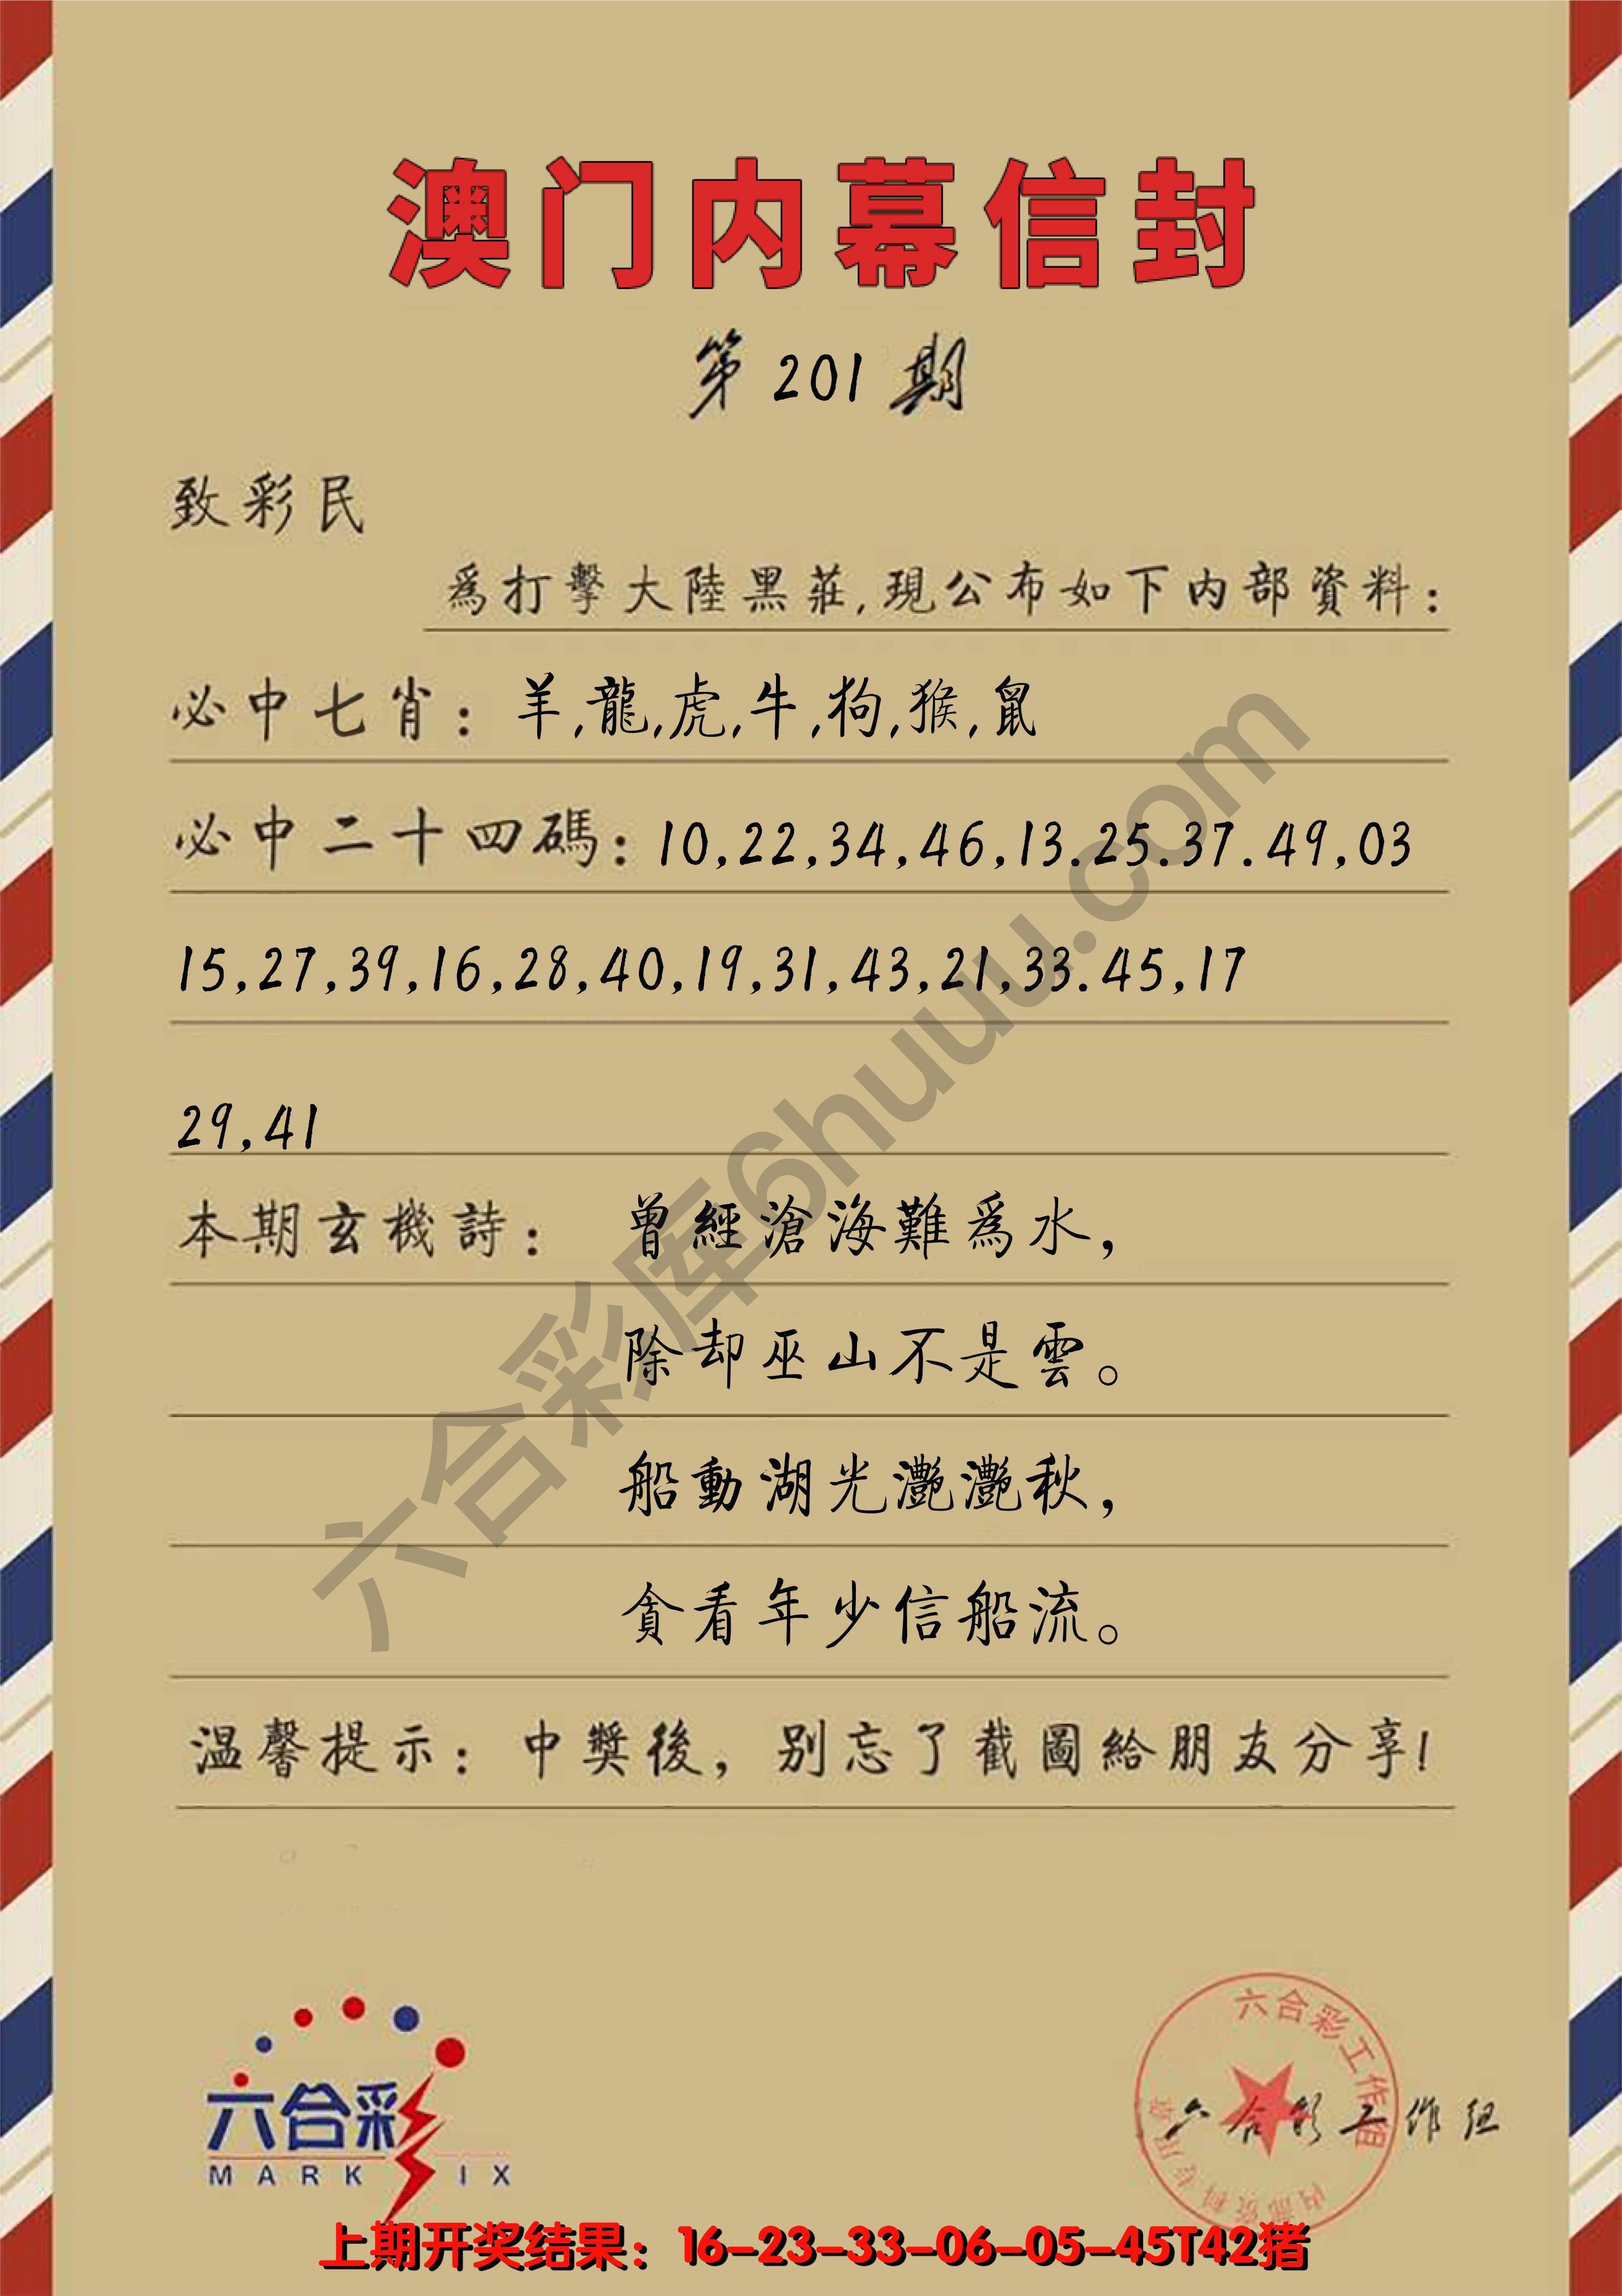 澳门内幕信封
第 201 期
致彩民
爲打擊大陸黑莊,現公布如下内部資料:
必中七肖: 羊,龍,虎,牛,狗,猴,鼠
必中二十四碼: 10,22,34,46,13.25.37.49,03
15,27,39,16,28,40,19,31,43,21,33.45,17
29,41
本期玄機詩: 曾經滄海難爲水,
除却巫山不是雲。
船動湖光灩灩秋,
貪看年少信船流。
温馨提示: 中獎後, 别忘了截圖給朋友分享!
六合彩库6huuu.com
六合彩
MARK IX
六合彩工作组
内部资料专用章
六合彩工作组
上期开奖结果: 16-23-33-06-05-45T42猪